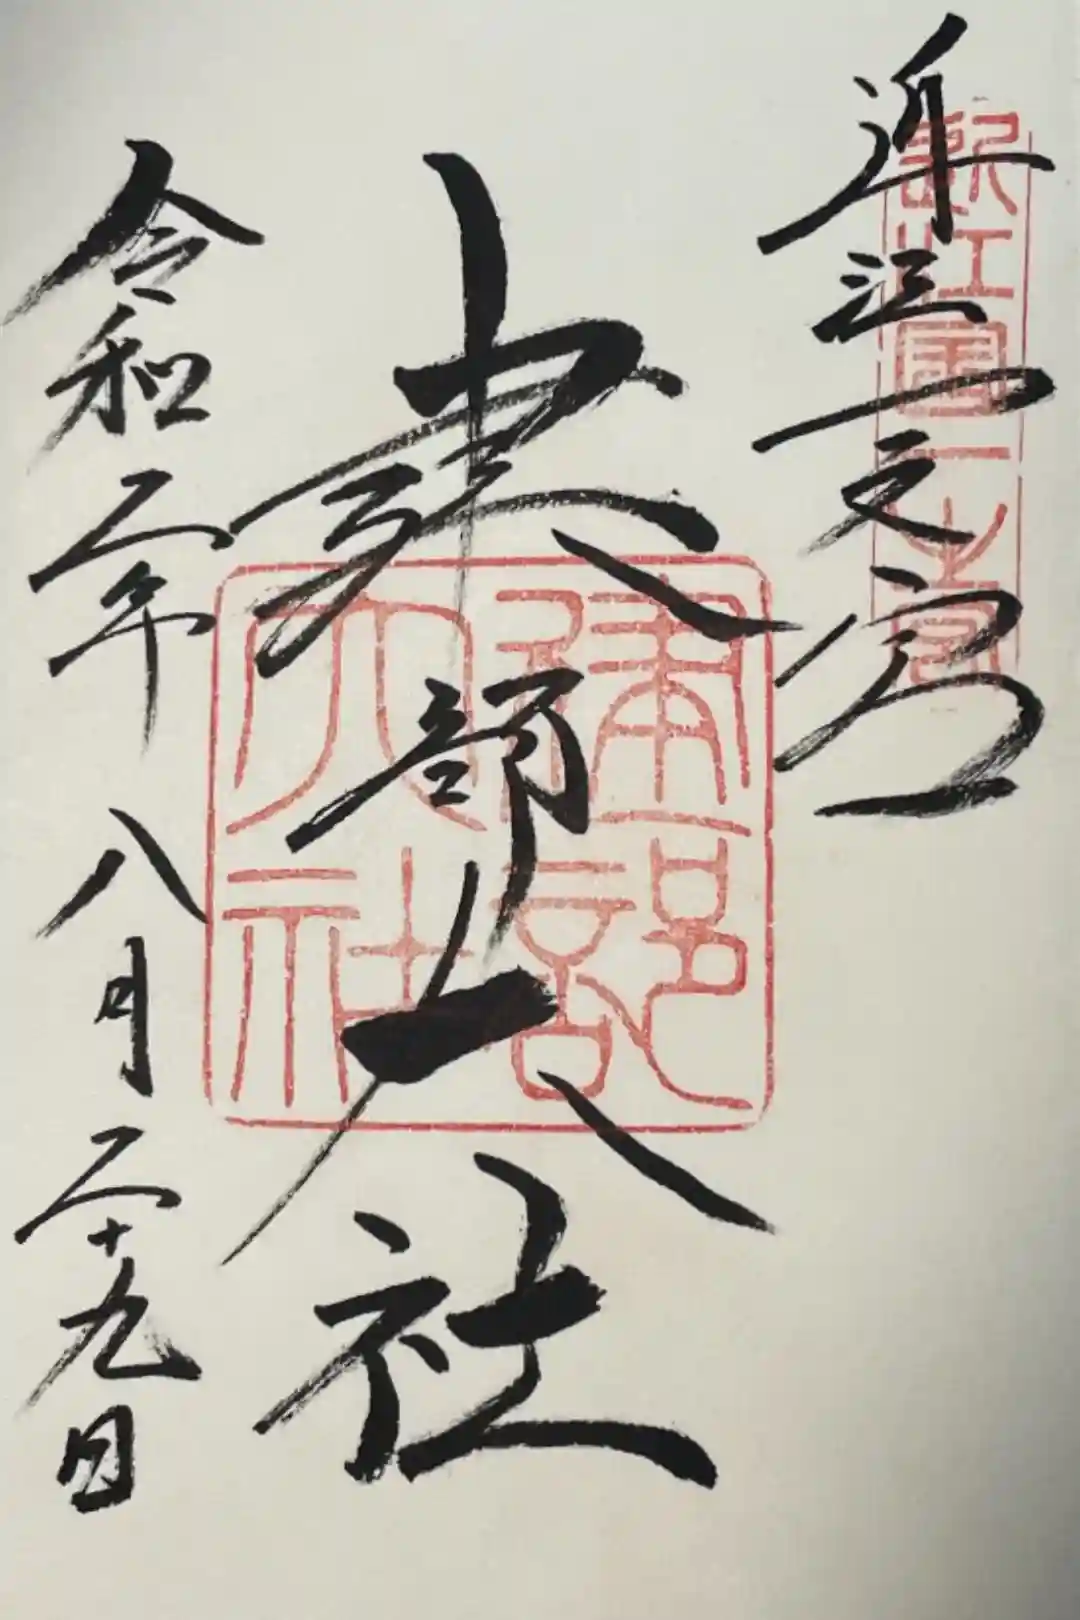 近江一之宮
近江国一之宮
建部大社
建部大社
令和二年八月二十九日